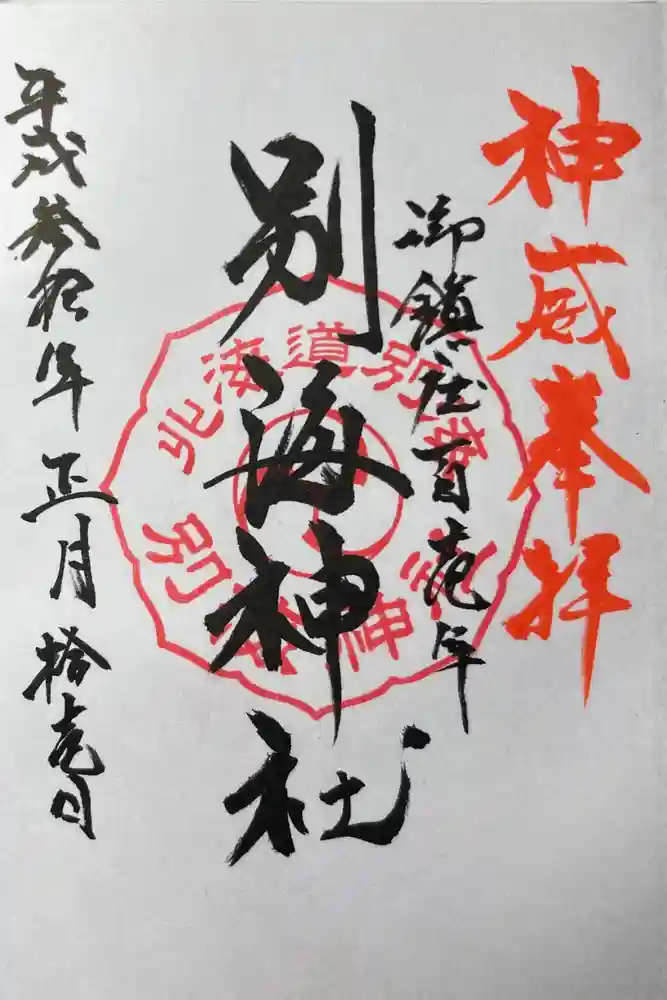 神威奉拝
御鎮座百壱年
別海神社
北海道別海
別海神社
平成参拾年 正月 拾壱日